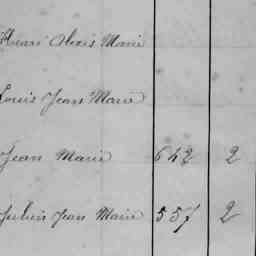 Henri Alexis Marie
Louis Jean Marie
Jean Marie 642 2
Julien Jean Marie 557 2